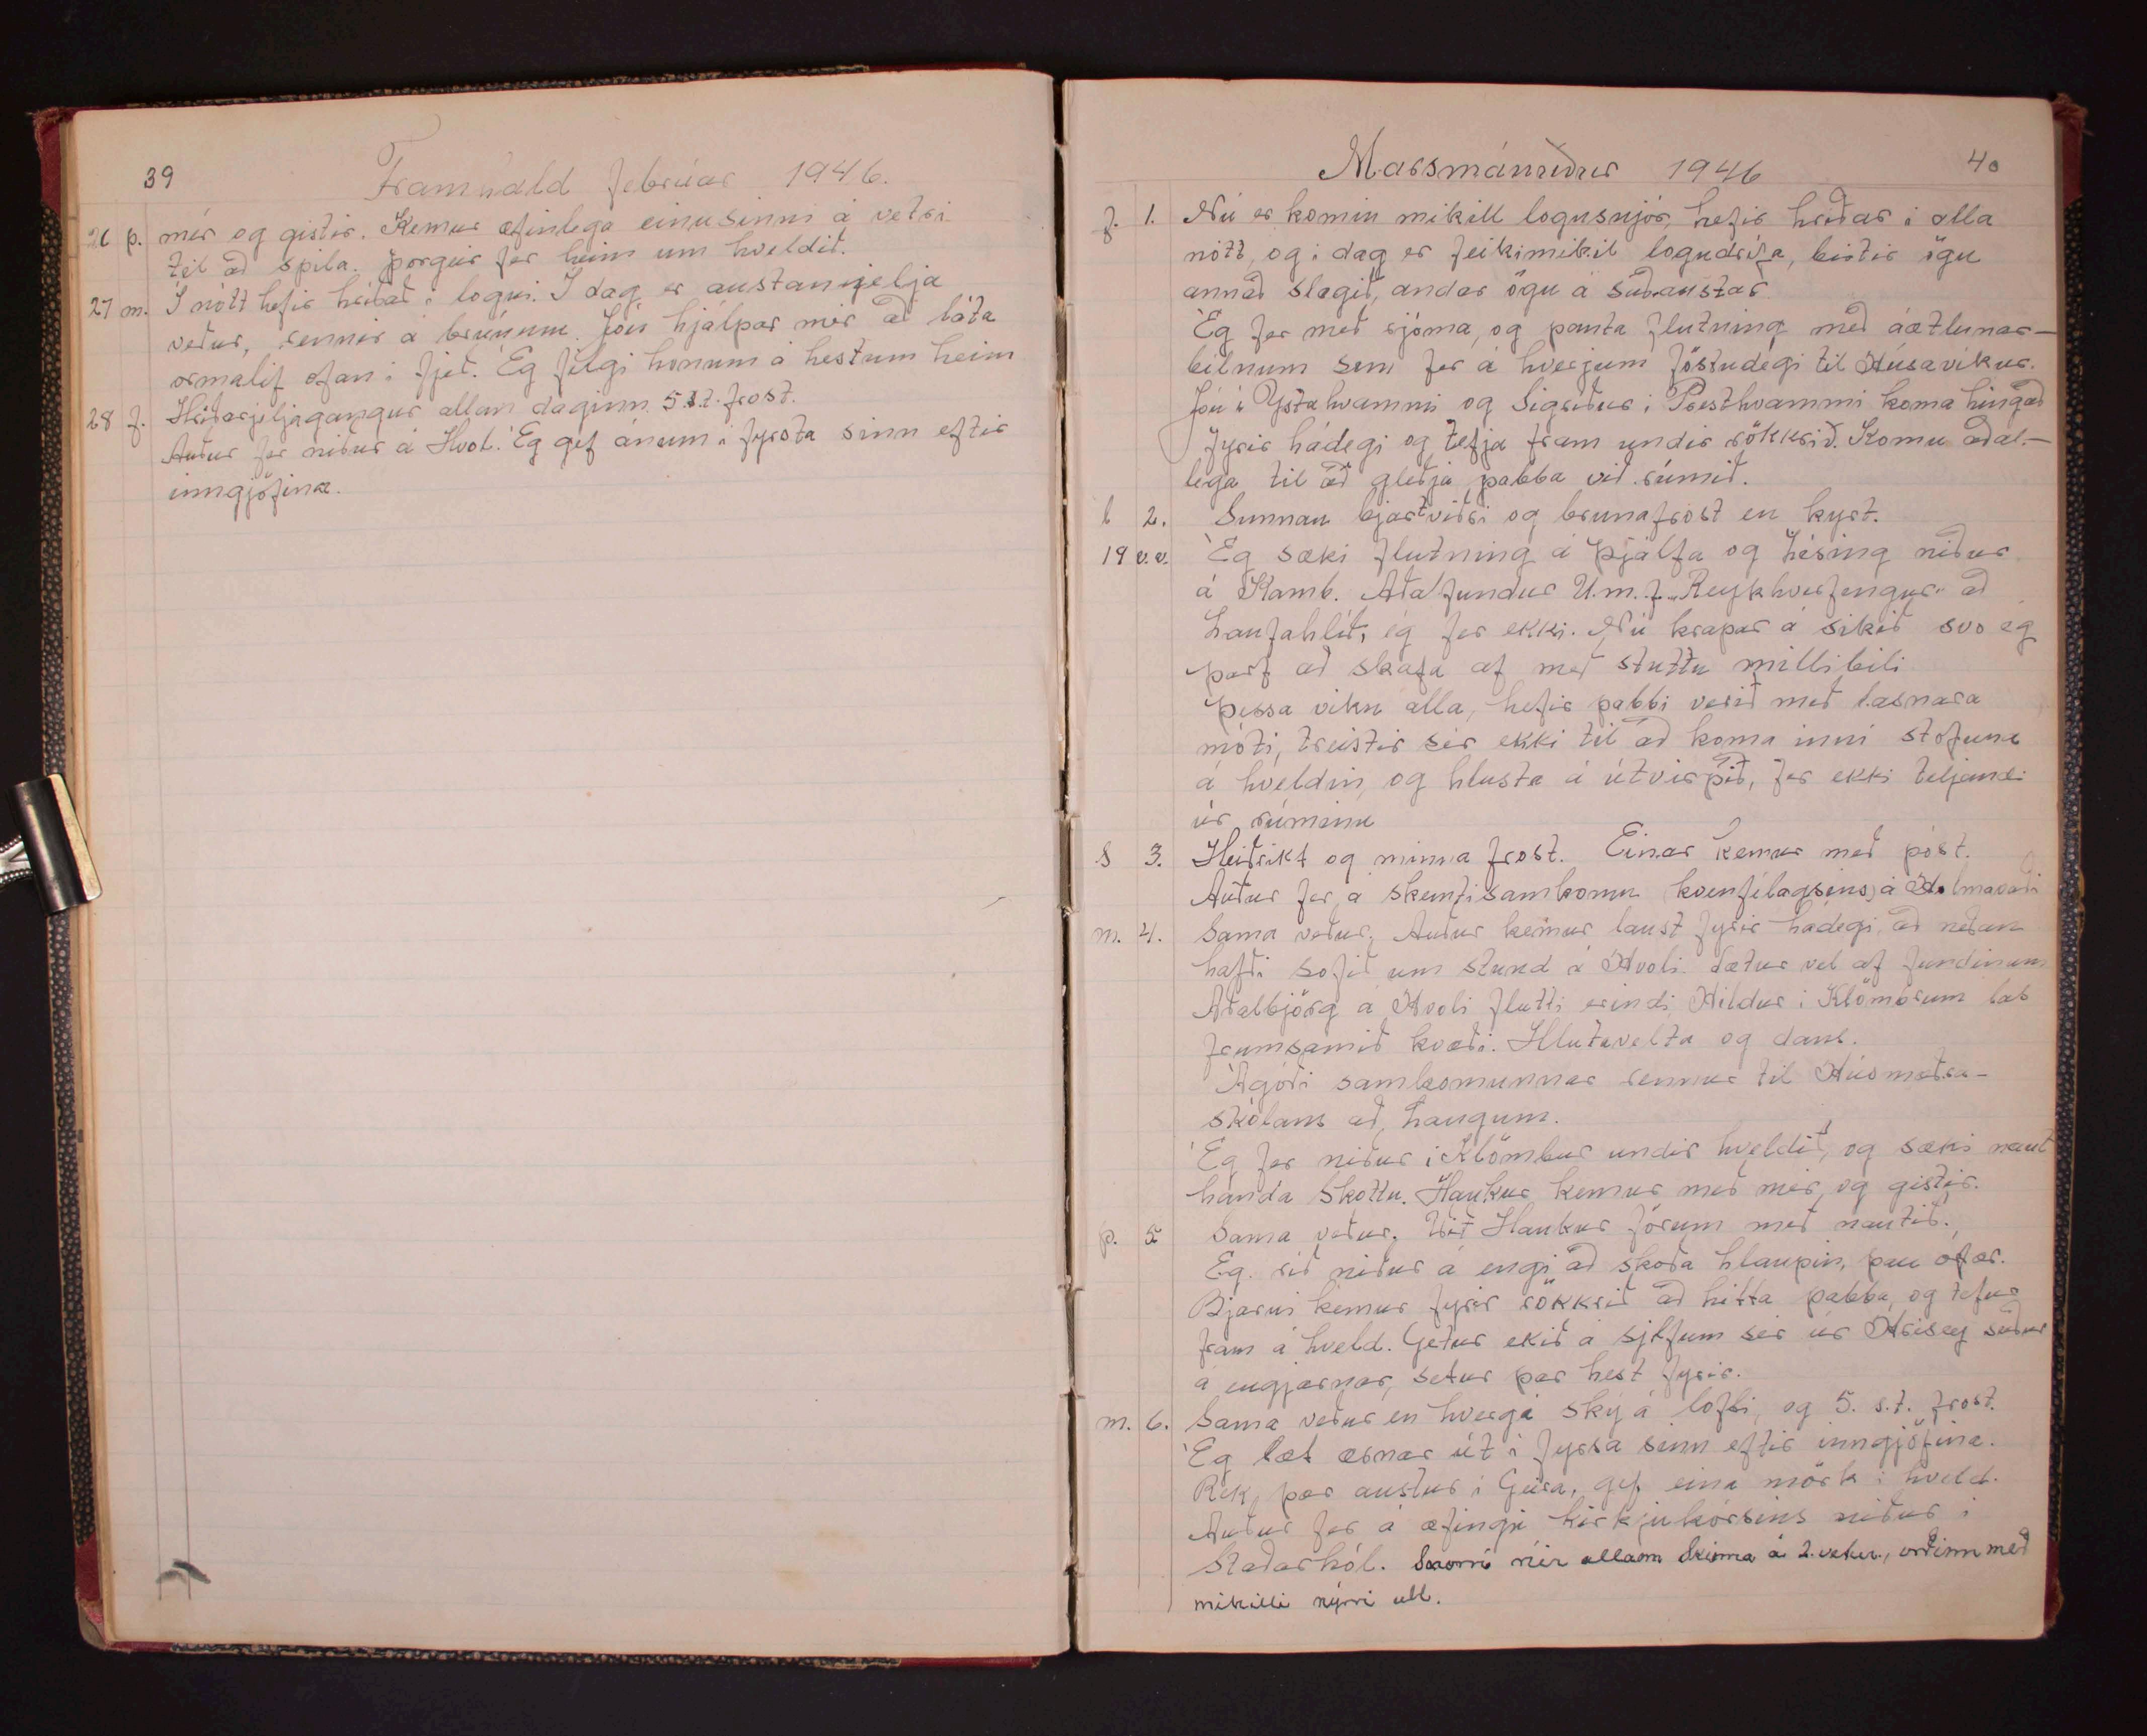 39
Framhald febrúar 1946.
26 þ. mér og gistir. Kemur æfinlega einusinni á vetri
til að spila. Þorgeir fer heim um kveldið.
27 m. Í nótt hefir hríðað í logni. Í dag er austanijelja
veður, rennir á brúnum. Jón hjálpar mér að láta
ormalif ofan í fjeð. Eg fylgi honum á hestum heim
28 f. Hríðarjeljagangur allan daginn 5.s.t. frost.
Auður fer niður á Hvol. Eg gef ánum í fyrsta sinn eftir
inngjöfina.
Marsmánuður 1946
40
f. 1. Nú er komin mikill logusnjór, hefir hríðar í alla
nótt, og í dag er feikimikil logudrífa, birtir ögu
annað slagið, andar ögu á suðaustar
Eg fer með rjóma, og panta flutning með áætlunar-
bílnum sem fer á hverjum föstudegi til Húsavíkur.
Jón í Ystahvammi og Sigríður í Presthvammi koma hingað
fyrir hádegi og tefja fram undir rökkrið. Komu aðal-
lega til að gleðja pabba við rúmið.
l 2. Sunnan bjartviðri og brunafrost en kyrt.
19 v.v. Eg sæki flutning á Þjálfa og Lésing niður
á Kamb. Aðalfundur U.m.f. „Reykhverfingur" að
Laufahlíð, ég fer ekki. Nú krapar á síkið svo eg
þarf að skafa af með stuttu millibili
Þessa viku alla, hefir pabbi verið með lasnara
móti, treistir sér ekki til að koma inní stofuna
á kveldin, og hlusta á útvarpið, fer ekki teljandi
úr rúminu
S 3. Heiðríkt og minna frost. Einar kemur með póst.
Auður fer á skemtisamkomu kvenfélagsins á Hólmavaði
m. 4. Sama veður. Auður kemur laust fyrir hádegi að neðan
hafði sofið um stund á Hvoli. Lætur vel af fundinum
Aðalbjörg á Hvoli flutti erindi Hildur í Klömbrum las
frumsamið kvæði. Hlutavelta og dans.
Ágóði samkomunnar rennur til Húsmæðra-
skólans að Laugum.
Eg fer niður í Klömbur undir kveldið, og sæki naut
handa Skottu. Haukur kemur með mér og gistir.
þ. 5 Sama veður. Við Haukur förum með nautið.
Eg. ríð niður á engi að skoða hlaupin, þau ófær.
Bjarni kemur fyrir rökkrið að hitta pabba, og tefur
fram á kveld. Getur ekið á sjlfum sér úr Hrísey suður
á engjarnar, setur þar hest fyrir.
m. 6. Sama veður en hvergi ský á lofti, og 5. s.t. frost.
Eg læt ærnar út í fyrsa sinn eftir inngjöfina.
Rek þær austur í Geira, gef eina mörk í kveld.
Auður fer á æfingu kirkjukórsins niður í
Staðarhól. Snorri rúir allaom Skinna á 2. vetur, orðinn með
mikilli nýrri ull.